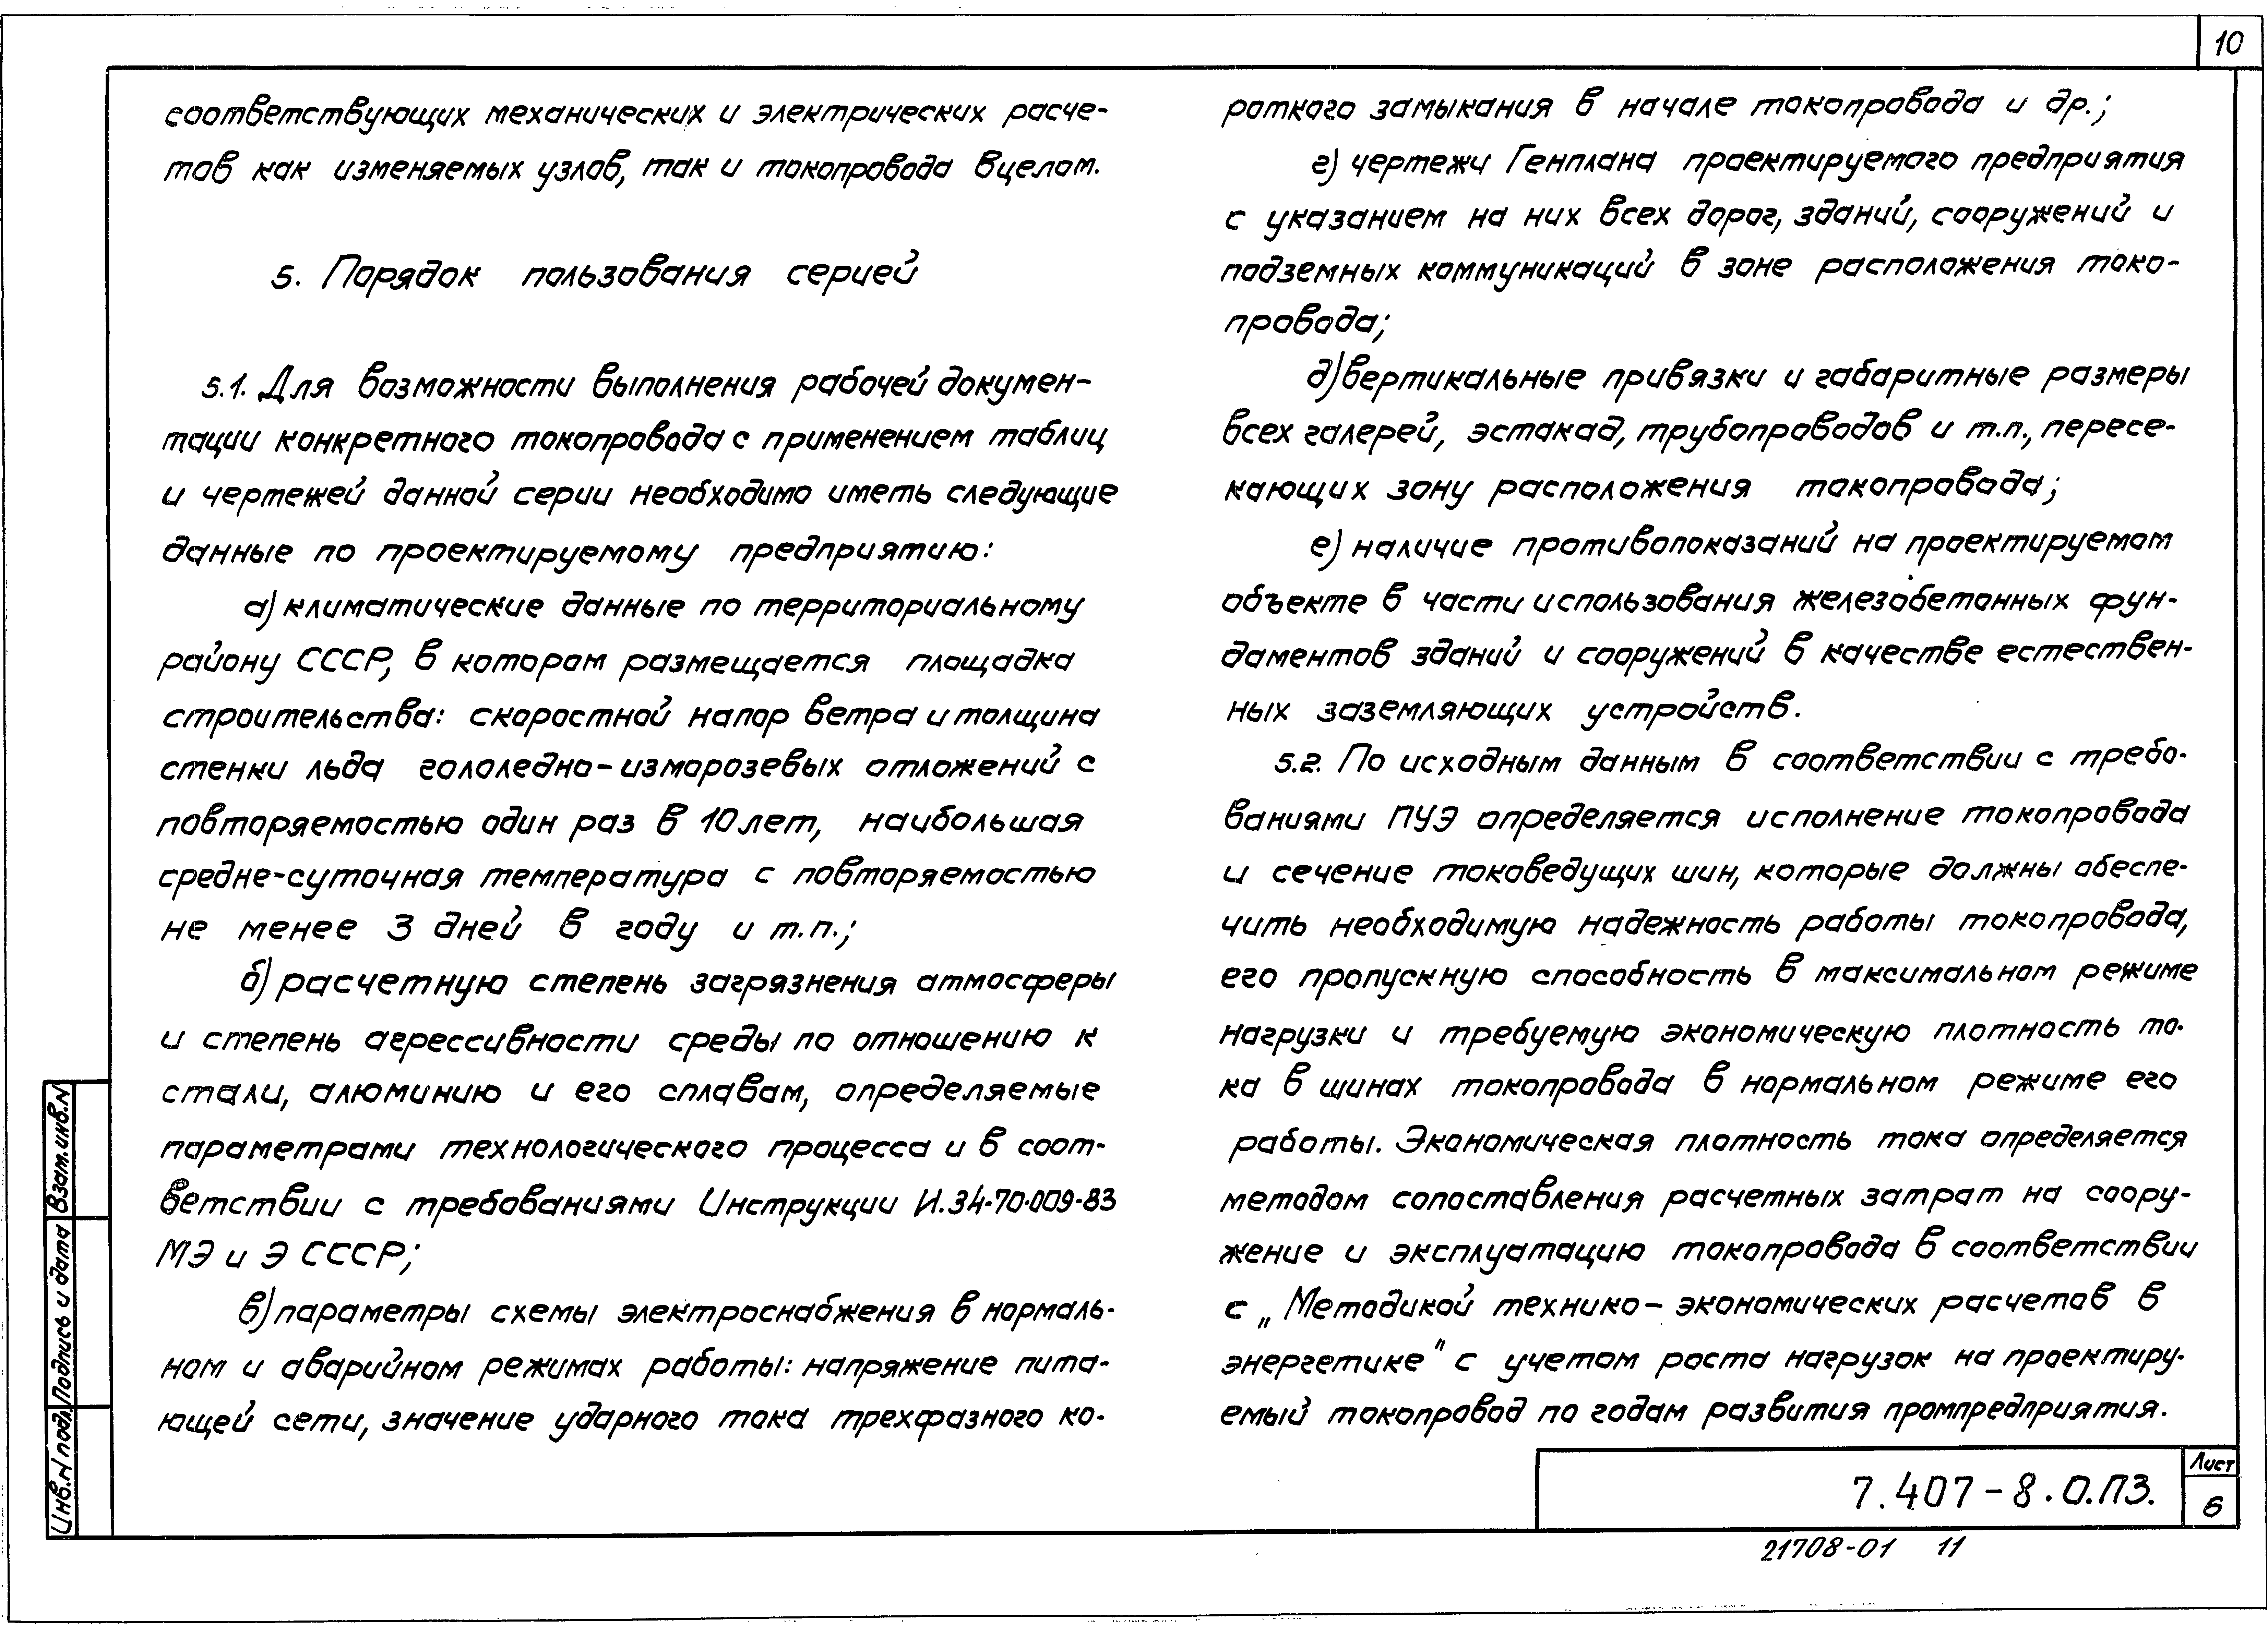 10
соответствующих механических и электрических расче-
тов как изменяемых узлов, так и токопровода вцелом.
5. Порядок пользования серией
5.1. Для возможности выполнения рабочей докумен-
тации конкретного токопровода с применением таблиц
и чертежей данной серии необходимо иметь следующие
данные по проектируемому предприятию:
а) климатические данные по территориальному
району СССР, в котором размещается площадка
строительства: скоростной напор ветра и толщина
стенки льда гололедно-изморозевых отложений с
повторяемостью один раз в 10 лет, наибольшая
средне-суточная температура с повторяемостью
не менее 3 дней в году и т.п.;
б) расчетную степень загрязнения атмосферы
и степень агрессивности среды по отношению к
стали, алюминию и его сплавам, определяемые
параметрами технологического процесса и в соот-
ветствии с требованиями Инструкции И.34-70-009-83
МЭ и Э СССР;
в) параметры схемы электроснабжения в нормаль-
ном и аварийном режимах работы: напряжение пита-
ющей сети, значение ударного тока трехфазного ко-
роткого замыкания в начале токопровода и др.;
г) чертежи Генплана проектируемого предприятия
с указанием на них всех дорог, зданий, сооружений и
подземных коммуникаций в зоне расположения токо-
провода;
д) вертикальные привязки и габаритные размеры
всех галерей, эстакад, трубопроводов и т.п., пересе-
кающих зону расположения токопровода;
е) наличие противопоказаний на проектируемом
объекте в части использования железобетонных фун-
даментов зданий и сооружений в качестве естествен-
ных заземляющих устройств.
5.2. По исходным данным в соответствии с требо-
ваниями ПУЭ определяется исполнение токопровода
и сечение токоведущих шин, которые должны обеспе-
чить необходимую надежность работы токопровода,
его пропускную способность в максимальном режиме
нагрузки и требуемую экономическую плотность то-
ка в шинах токопровода в нормальном режиме его
работы. Экономическая плотность тока определяется
методом сопоставления расчетных затрат на соору-
жение и эксплуатацию токопровода в соответствии
с „Методикой технико-экономических расчетов в
энергетике" с учетом роста нагрузок на проектиру-
емый токопровод по годам развития промпредприятия.
Взам.инв.N
Подпись и дата
Инв.N подл.
7.407-8.0.ПЗ.
Лист
6
21708-01 11